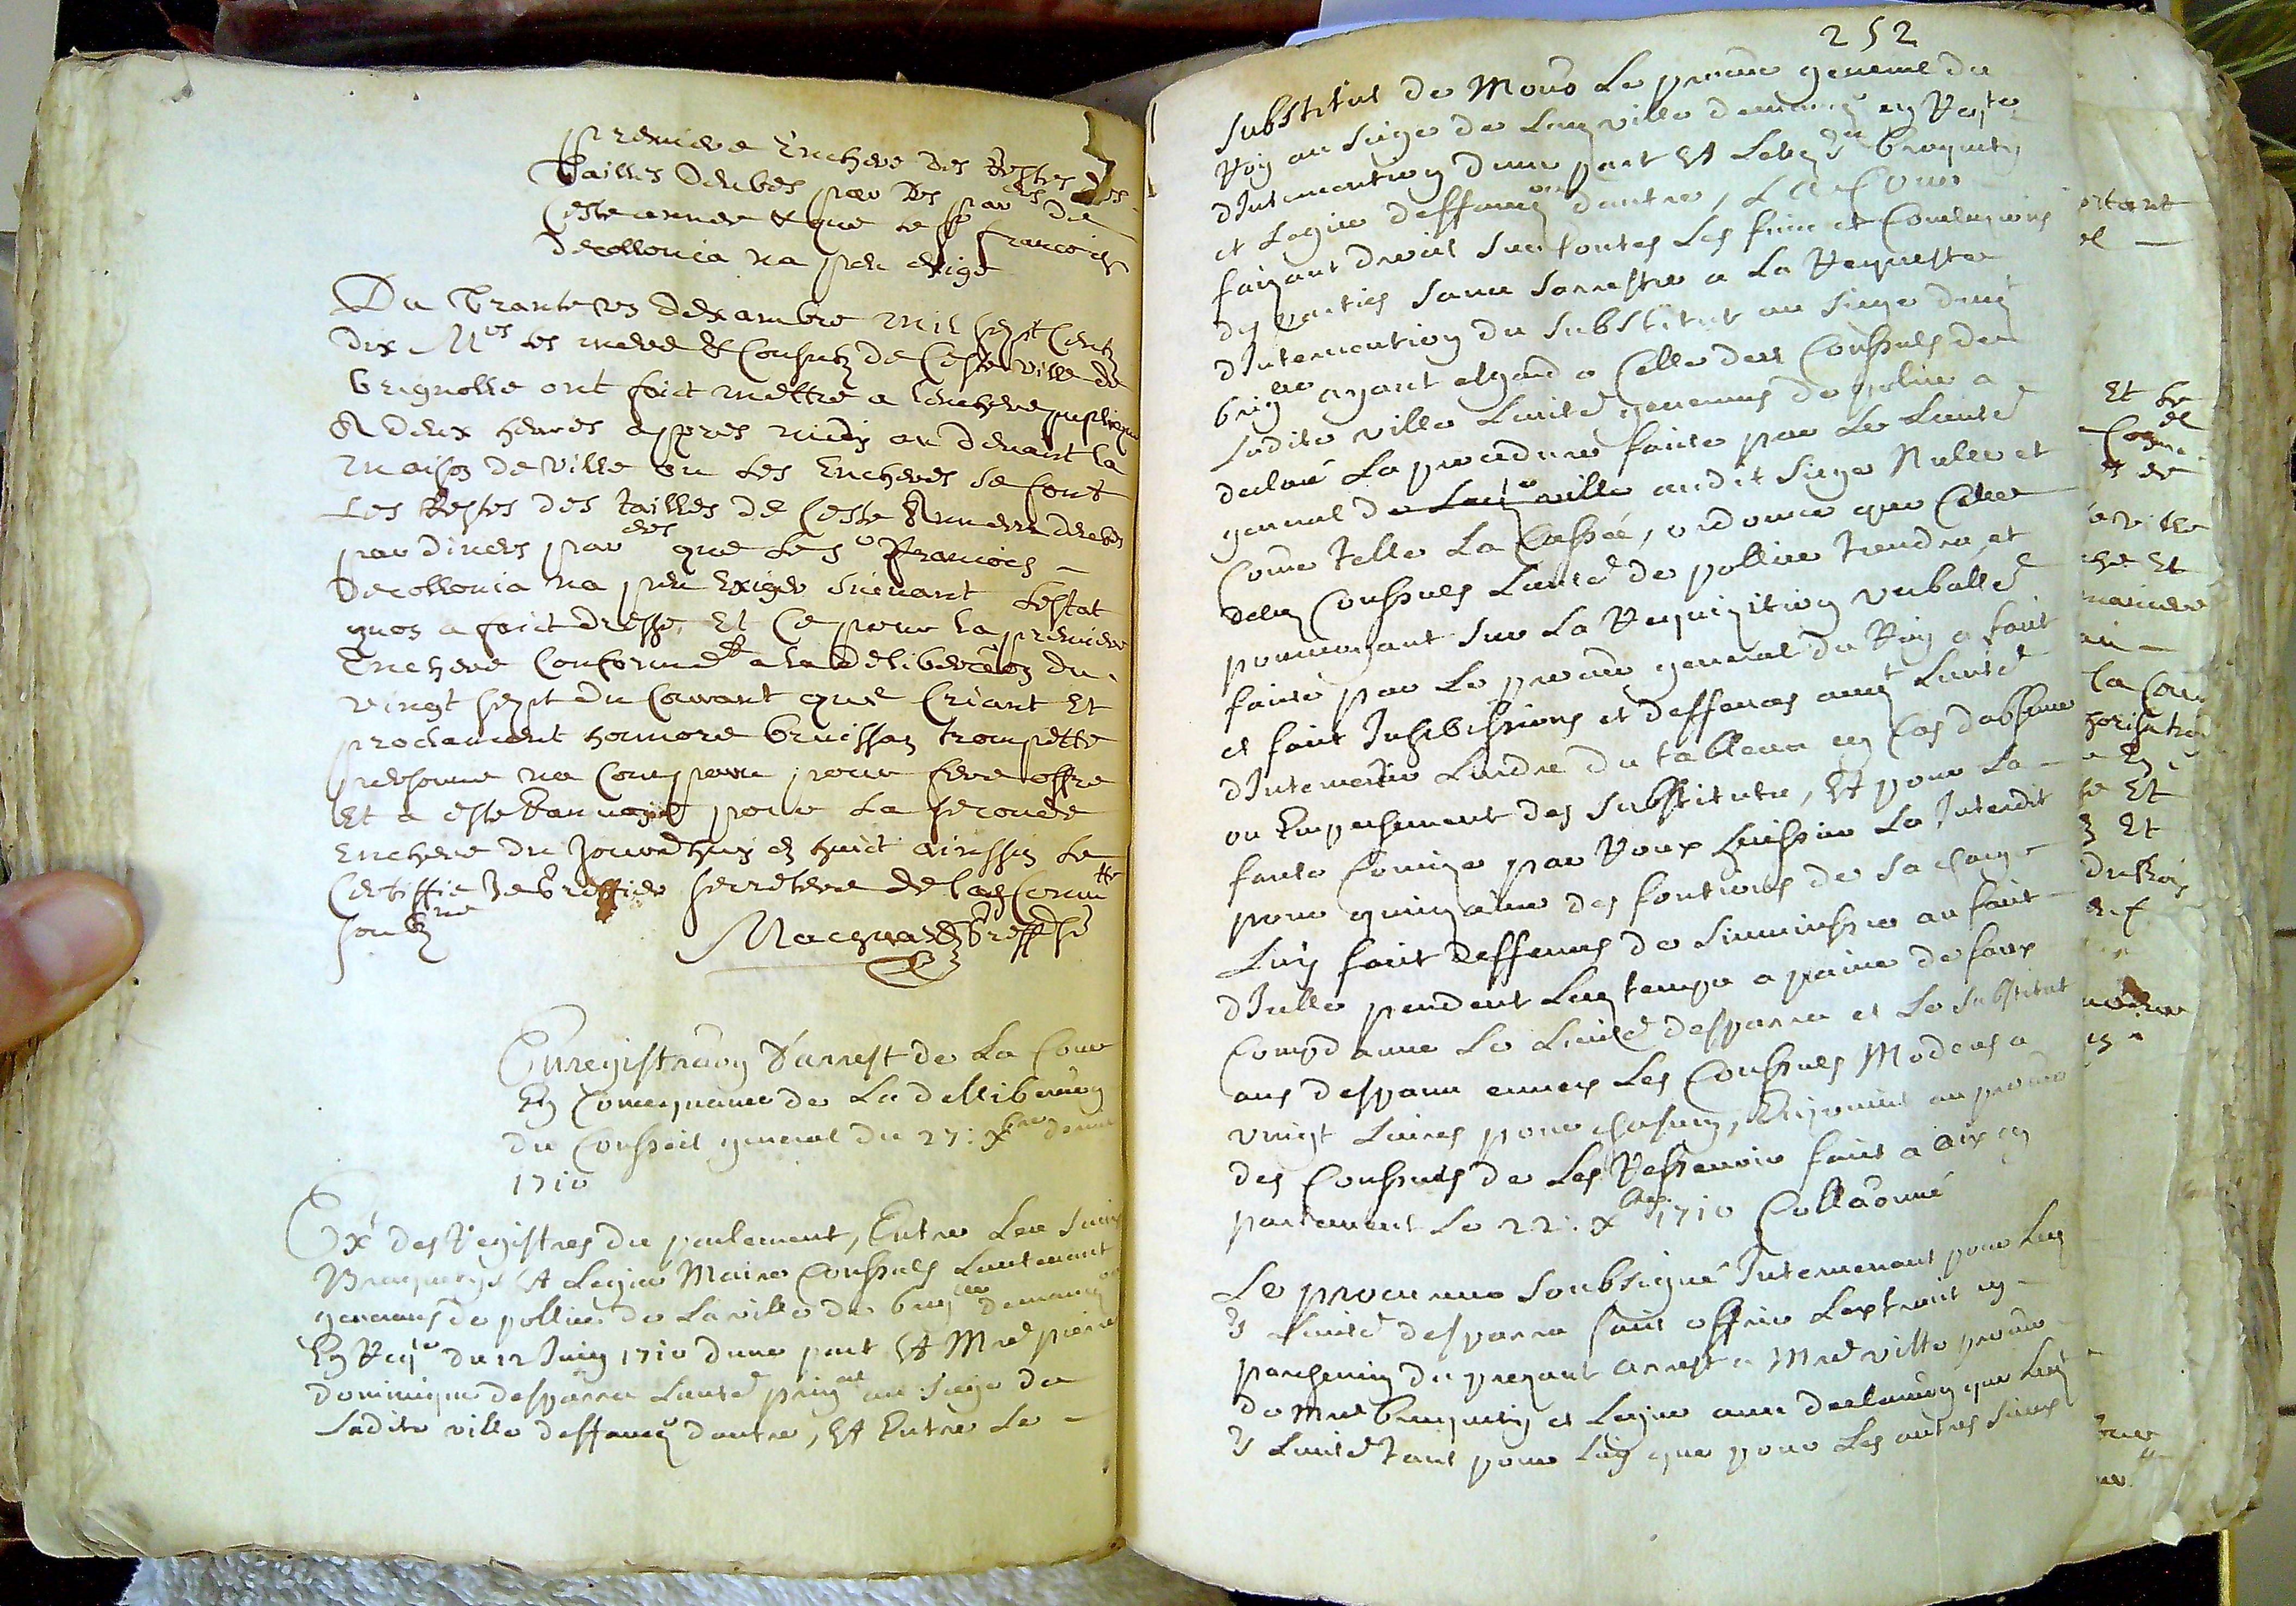 premiere Enchere des Restes des
Tailles deubes par des par^ers de
Ceste annee & que le s^r francois
Decollonia na peu exige
Du Trante un dexambre mil sept Cents
dix M^rs les mere & Consulz de Ceste ville de
brignolle ont faict mettre a lenchere publique
A deux heures appres midy au devant la
maison de ville ou les Encheres se font
Les Restes des tailles de Ceste Annee deubes
par divers par^ers que le s^r francois
Decollonia na peu Exiger suivant lestat
quon a faict dresse, Et Ce pour la premiere
Enchere Conformem^t a la deliberaon du
vingt sept du Courant que Criant Et
proclamant honnore bruissan trompette
personne na Comparu pour fere offre
Et a este Ranvoyé pour la seconde
Enchere du Jourdhuy en huict ainssin le
Certiffie Je Greffier secretere de lad Comm^tte
soub^ne
Enregistraon d'arrest de La Cour
En Consequance de La delliberaon
du Conseil general du 27: x^bre dernier
1710
Ex^t des Registres du parlement, Entre Les Sieurs
Braquetys Et Legier Maire Consuls Lieutenant
generaus de pollice de La ville de brig^lle demand^rs
En Req^te du 12 Juin 1710 dune part Et M^re pierre
dominique desparra Lieute^t prin^al au siege de
Ladite ville deffand^r dautre, Et Entre Le
252
substitut de Mons^r Le procur^r general du
Roy au siege de Lad ville demand^r en Req^te
dIntervention dune part Et Lesd s^rs braquety
et Legier deffand^rs dautre, La Cour
faizant droit sur toutes Les fins et Conclusions
des parties sans sarrester a La Requeste
dIntervention du substitut au siege dud^t
brig^lle ayant esgard a Celle desd Consuls de
Ladite ville Lieut^ts generaus de police a
declaré La procedure faite par Le Lieute^t
general de audit siege Nulle et
Come telle La Cassée, ordonne que Celle
desd Consuls Lieute^ts de pollice tiendra, et
pourvoyant sur La Requisition verballe^t
faite par Le procur^r general du Roy a fait
et fait Inhibitions et deffences aud^t Lieute^t
dIntervertir Lordre du tableau en Cas dabsence
ou Empechement des substituts, Et pour La
faute Comise par Roux huissier La Interdit
pour quinzaine des fontions de sa charge
Luy fait deffences de simmiscer au fait
dIcelle pendent Led temps a paine de faux
Compdanne Le Lieute^t desparra et Le substitut
aus despans envers Les Consuls Moderes a
vingt Livres pour chascun, Enjoint au procur^r
des Consuls de Les Resservir fait a aix en
parlement Le 22: x^bre 1710 Collaonné
Le procureur soubsigné Intervenant pour Led
s^r Lieute^t desparra fait offrir Lextrait en
parchemin du prezant arrest a M^re ville procur^r
de M^res braquety et Legier avec declaraon que Led
s^r Lieute^t tant pour Luy que pour Les autres sieurs